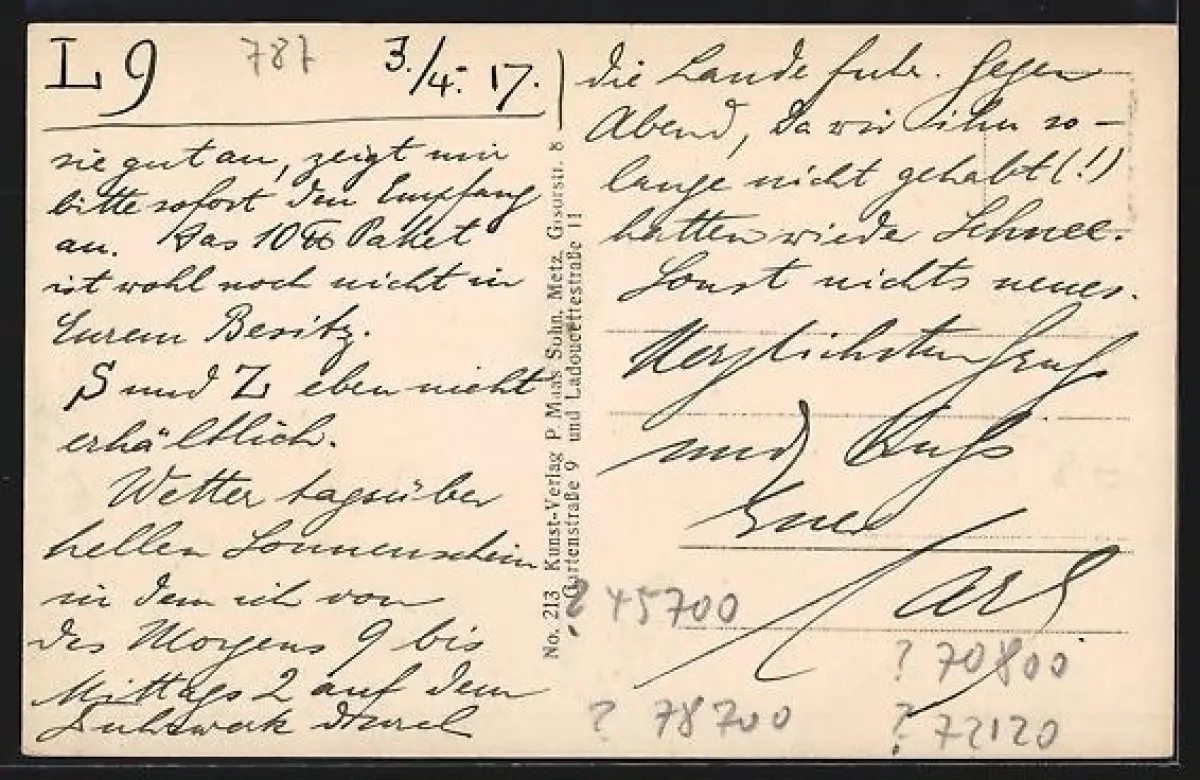 L 9 787 3./4. 17.
sie gut an, zeigt mir
bitte sofort den Empfang
an. Das 10 ℔ Paket
ist wohl noch nicht in
Eurem Besitz.
S und Z eben nicht
erhältlich.
Wetter tagsüber
hellen Sonnenschein
in dem ich von
des Morgens 9 bis
Mittags 2 auf dem
Fuhrwerk durch
No. 213 Kunst-Verlag P. Maas Sohn, Metz, Gisorsstr. 8
Gartenstraße 9 und Ladoucettestraße 11
die Lande fuhr. Gegen
Abend, da wir ihn so-
lange nicht gehabt (!)
hatten wieder Schnee.
Sonst nichts neues.
Herzlichsten Gruß
und Kuß
Euer
Carl
? 45700
? 70800
? 78700
? 72120